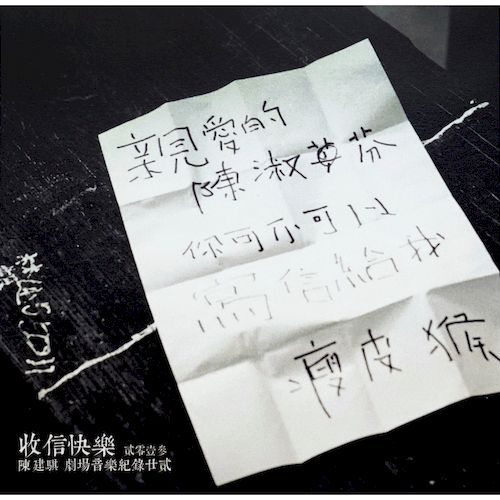 親愛的
陳淑英芬
你可不可以
寫信給我
瘦皮猴
收信快樂 貳零壹參
陳建騏 劇場音樂紀錄廿貳